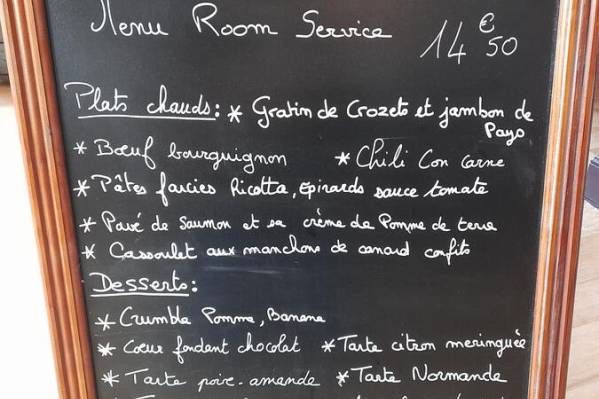 Menu Room Service 14€50
Plats chauds: * Gratin de Crozets et jambon de
Pays
* Bœuf bourguignon * Chili Con carne
* Pâtes farcies Ricotta, épinards sauce tomate
* Pavé de Saumon et sa crème de Pomme de terre
* Cassoulet aux manchons de canard confits
Desserts:
* Crumble Pomme, Banane
* Cœur fondant chocolat * Tarte citron meringuée
* Tarte poire-amande * Tarte Normande